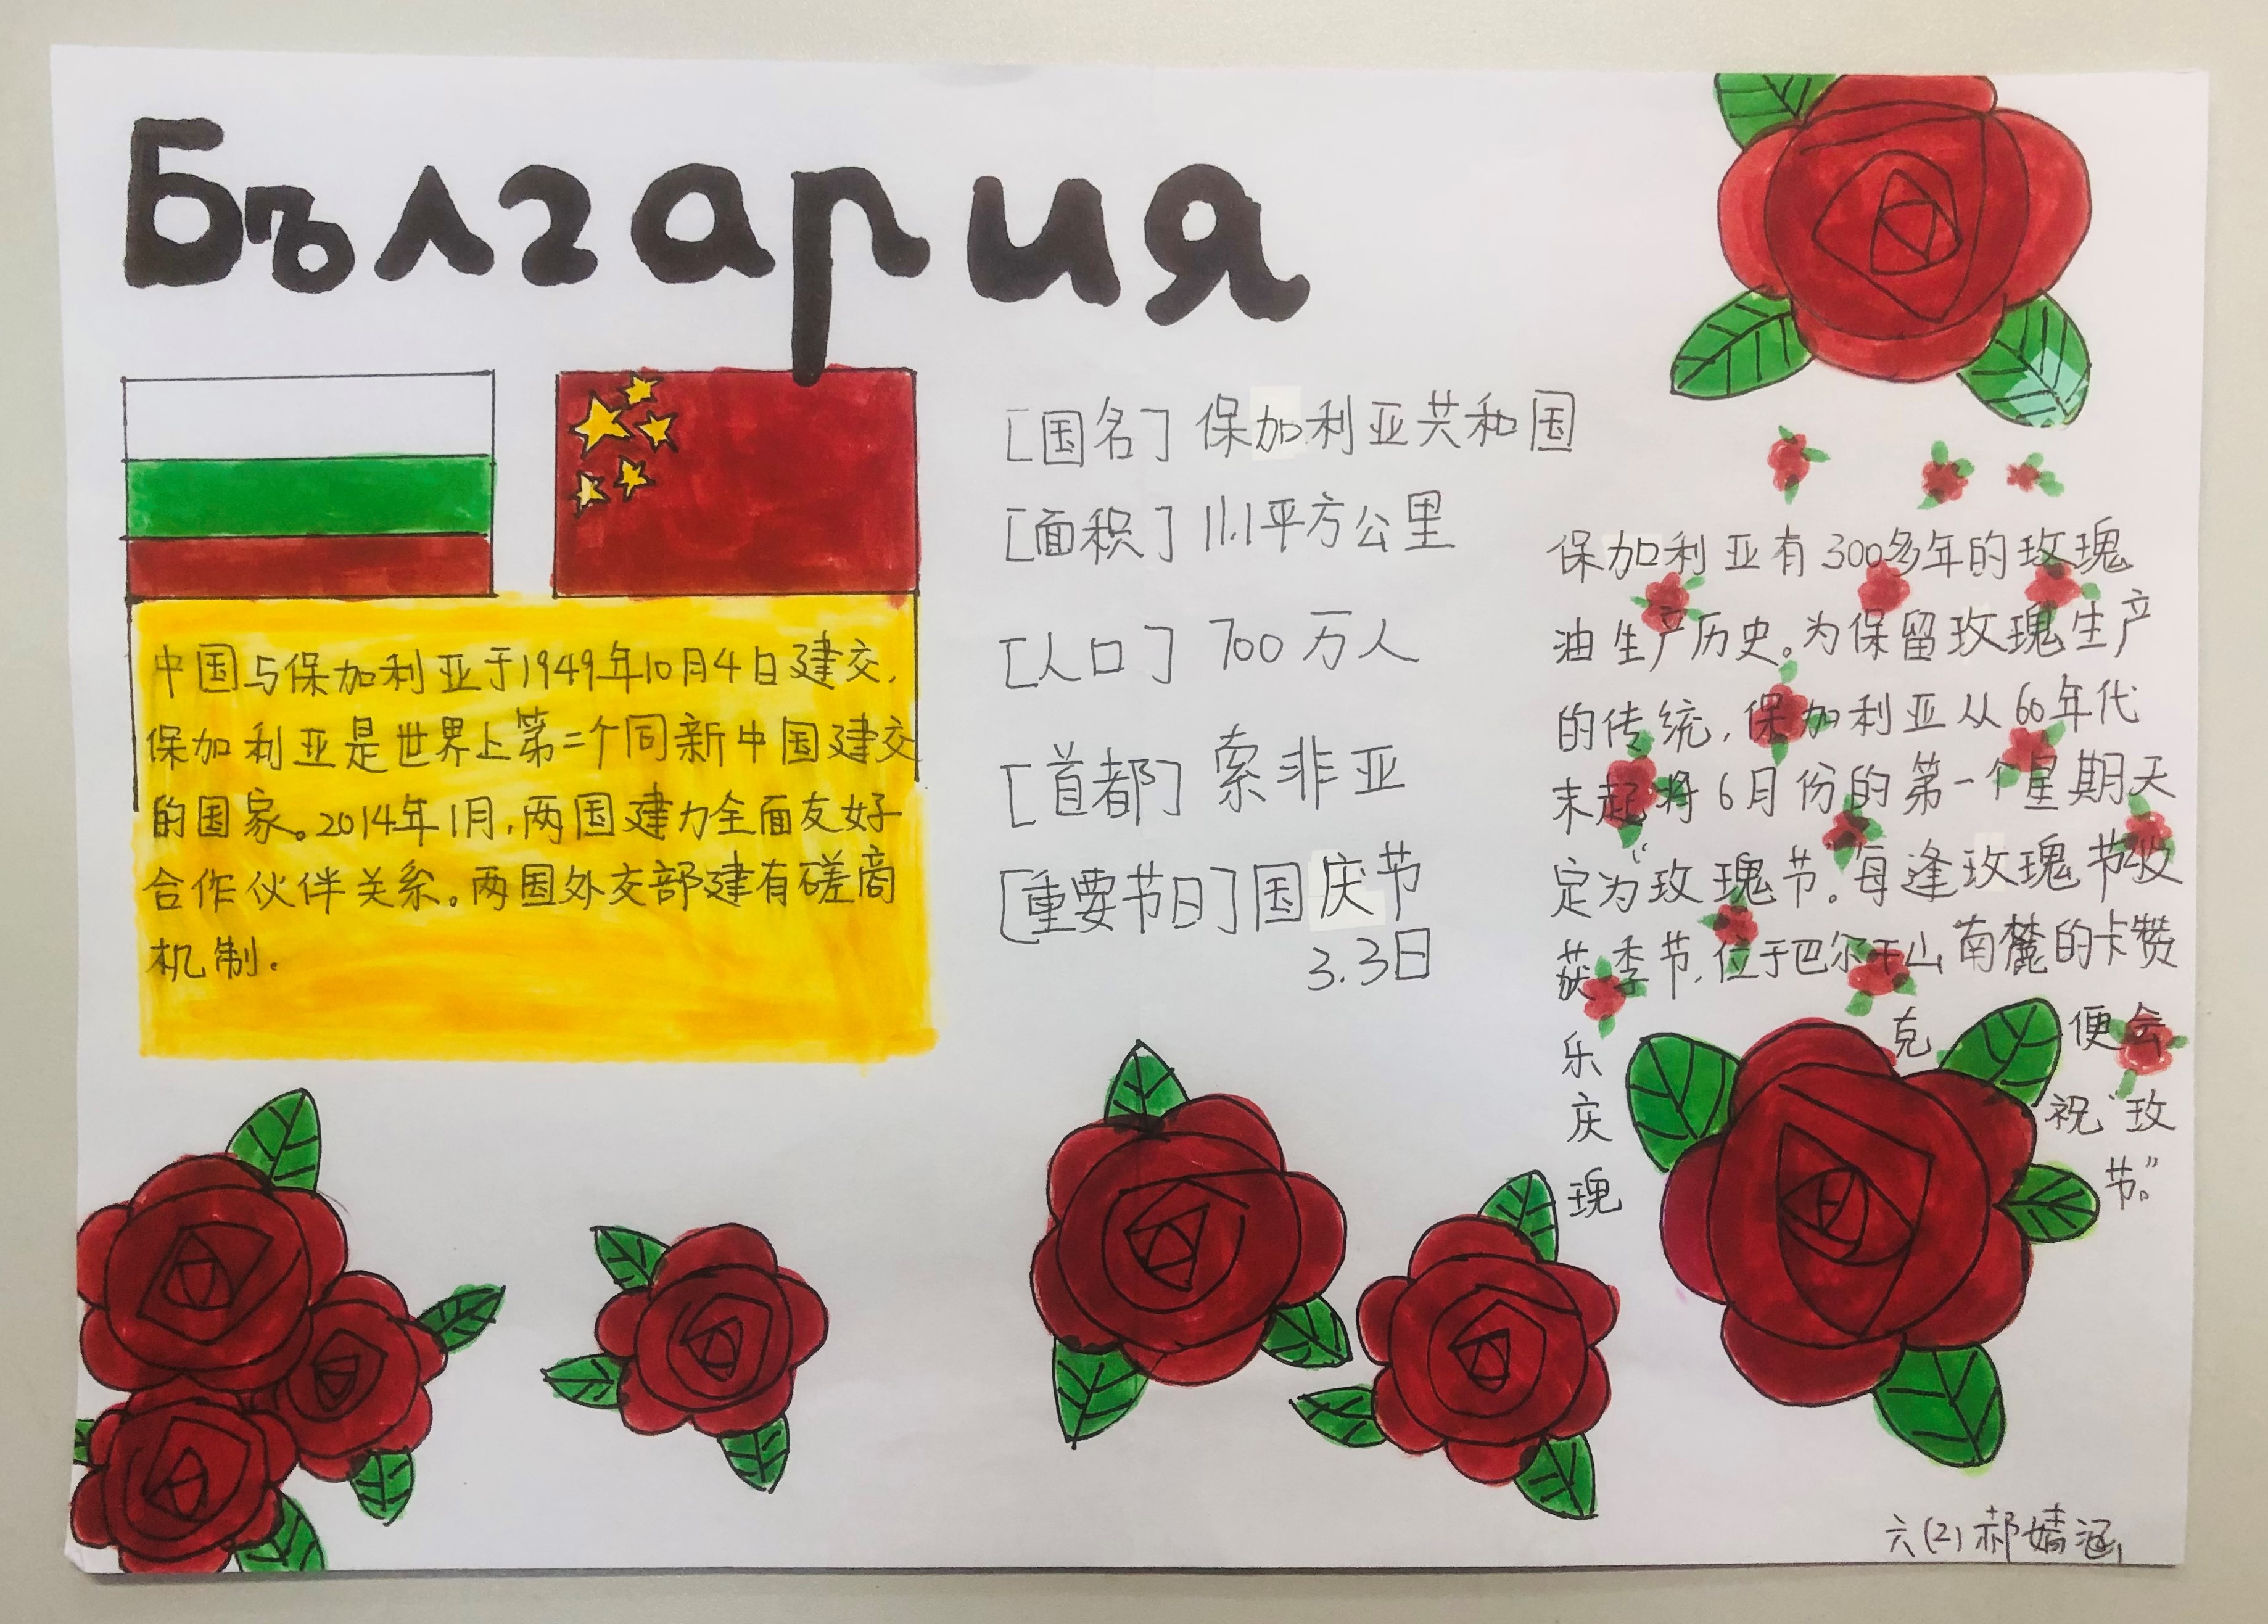 България
中国与保加利亚于1949年10月4日建交,
保加利亚是世界上第二个同新中国建交
的国家。2014年1月,两国建力全面友好
合作伙伴关系。两国外交部建有磋商
机制.
[国名] 保加利亚共和国
[面积] 11.1平方公里
[人口] 700万人
[首都] 索非亚
[重要节日] 国庆节
3.3日
保加利亚有300多年的玫瑰
油生产历史。为保留玫瑰生产
的传统,保加利亚从60年代
末起将6月份的第一个星期天
定为“玫瑰节”。每逢玫瑰节收
获季节,位于巴尔干山南麓的卡赞
乐 克 便会
庆 祝“玫
瑰 节。”
六(2)郝婧涵